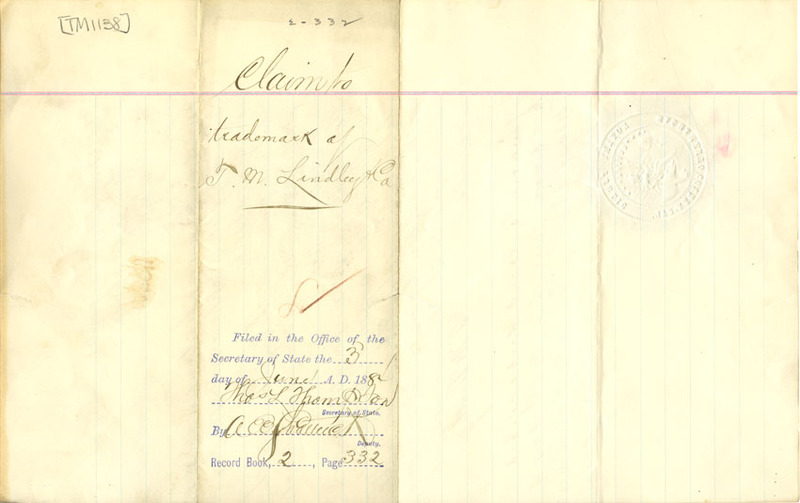 [TM1138]
2-332
Claim to
trademark of
T. M. Lindley & Co
Filed in the Office of the
Secretary of State the 5
day of June A. D. 188
Thos L Thompson
Secretary of State.
By
Deputy.
Record Book, 2, Page 332